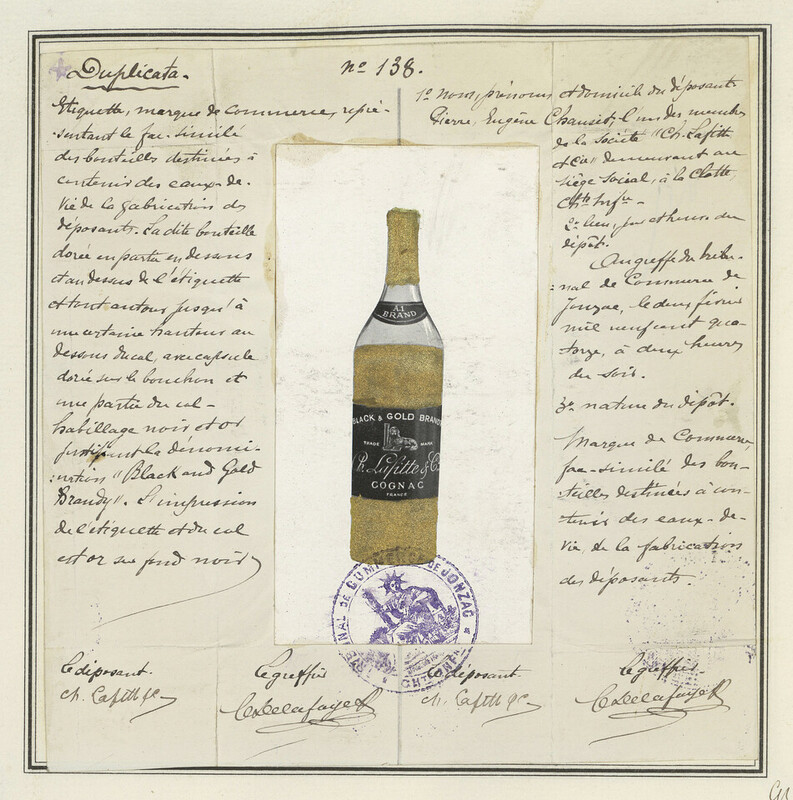 Duplicata.
nº 138.
Etiquette, marque de commerce, repré-
sentant le fac-similé
des bouteilles destinées à
contenir des eaux-de-
vie de la fabrication des
déposants. La dite bouteille
dorée en partie en dessous
et au dessus de l'étiquette
et tout autour jusqu'à
une certaine hauteur au
dessous du col, avec capsule
dorée sur le bouchon et
une partie du col -
habillage noir et or
justifiant la dénomi-
nation "Black and Gold
Brandy". L'impression
de l'étiquette et du col
est or sur fond noir
A.1
BRAND
BLACK & GOLD BRAND
TRADE MARK
Ch. Lafitte & Co
COGNAC
FRANCE
1º noms, prénoms et domicile du déposant.
Pierre, Eugène Chauset, l'un des membres
de la Société "Ch. Lafitte
et Cie" demeurant au
siège social, à la Clotte,
Chte Infre -
2º lieu, jour et heure du
dépôt.
Au greffe du tribu-
nal de Commerce de
Jonzac, le deux février
mil neuf cent qua-
torze, à deux heures
du soir.
3º nature du dépôt.
Marque de Commerce,
fac-similé des bou-
teilles destinées à con-
tenir des eaux-de-
vie, de la fabrication
des déposants.
TRIBUNAL DE COMMERCE DE JONZAC
Le déposant.
Ch. Lafitte & Co
Le greffier
Le déposant.
Ch. Lafitte & Co
Le greffier